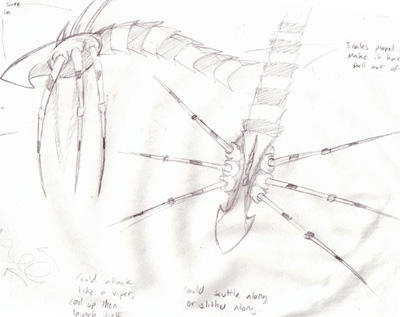 Sure
in
Scales propel
Make it
pull out of
Could attack
like a viper,
coil up then
launch itself
Could scuttle along
or slither along